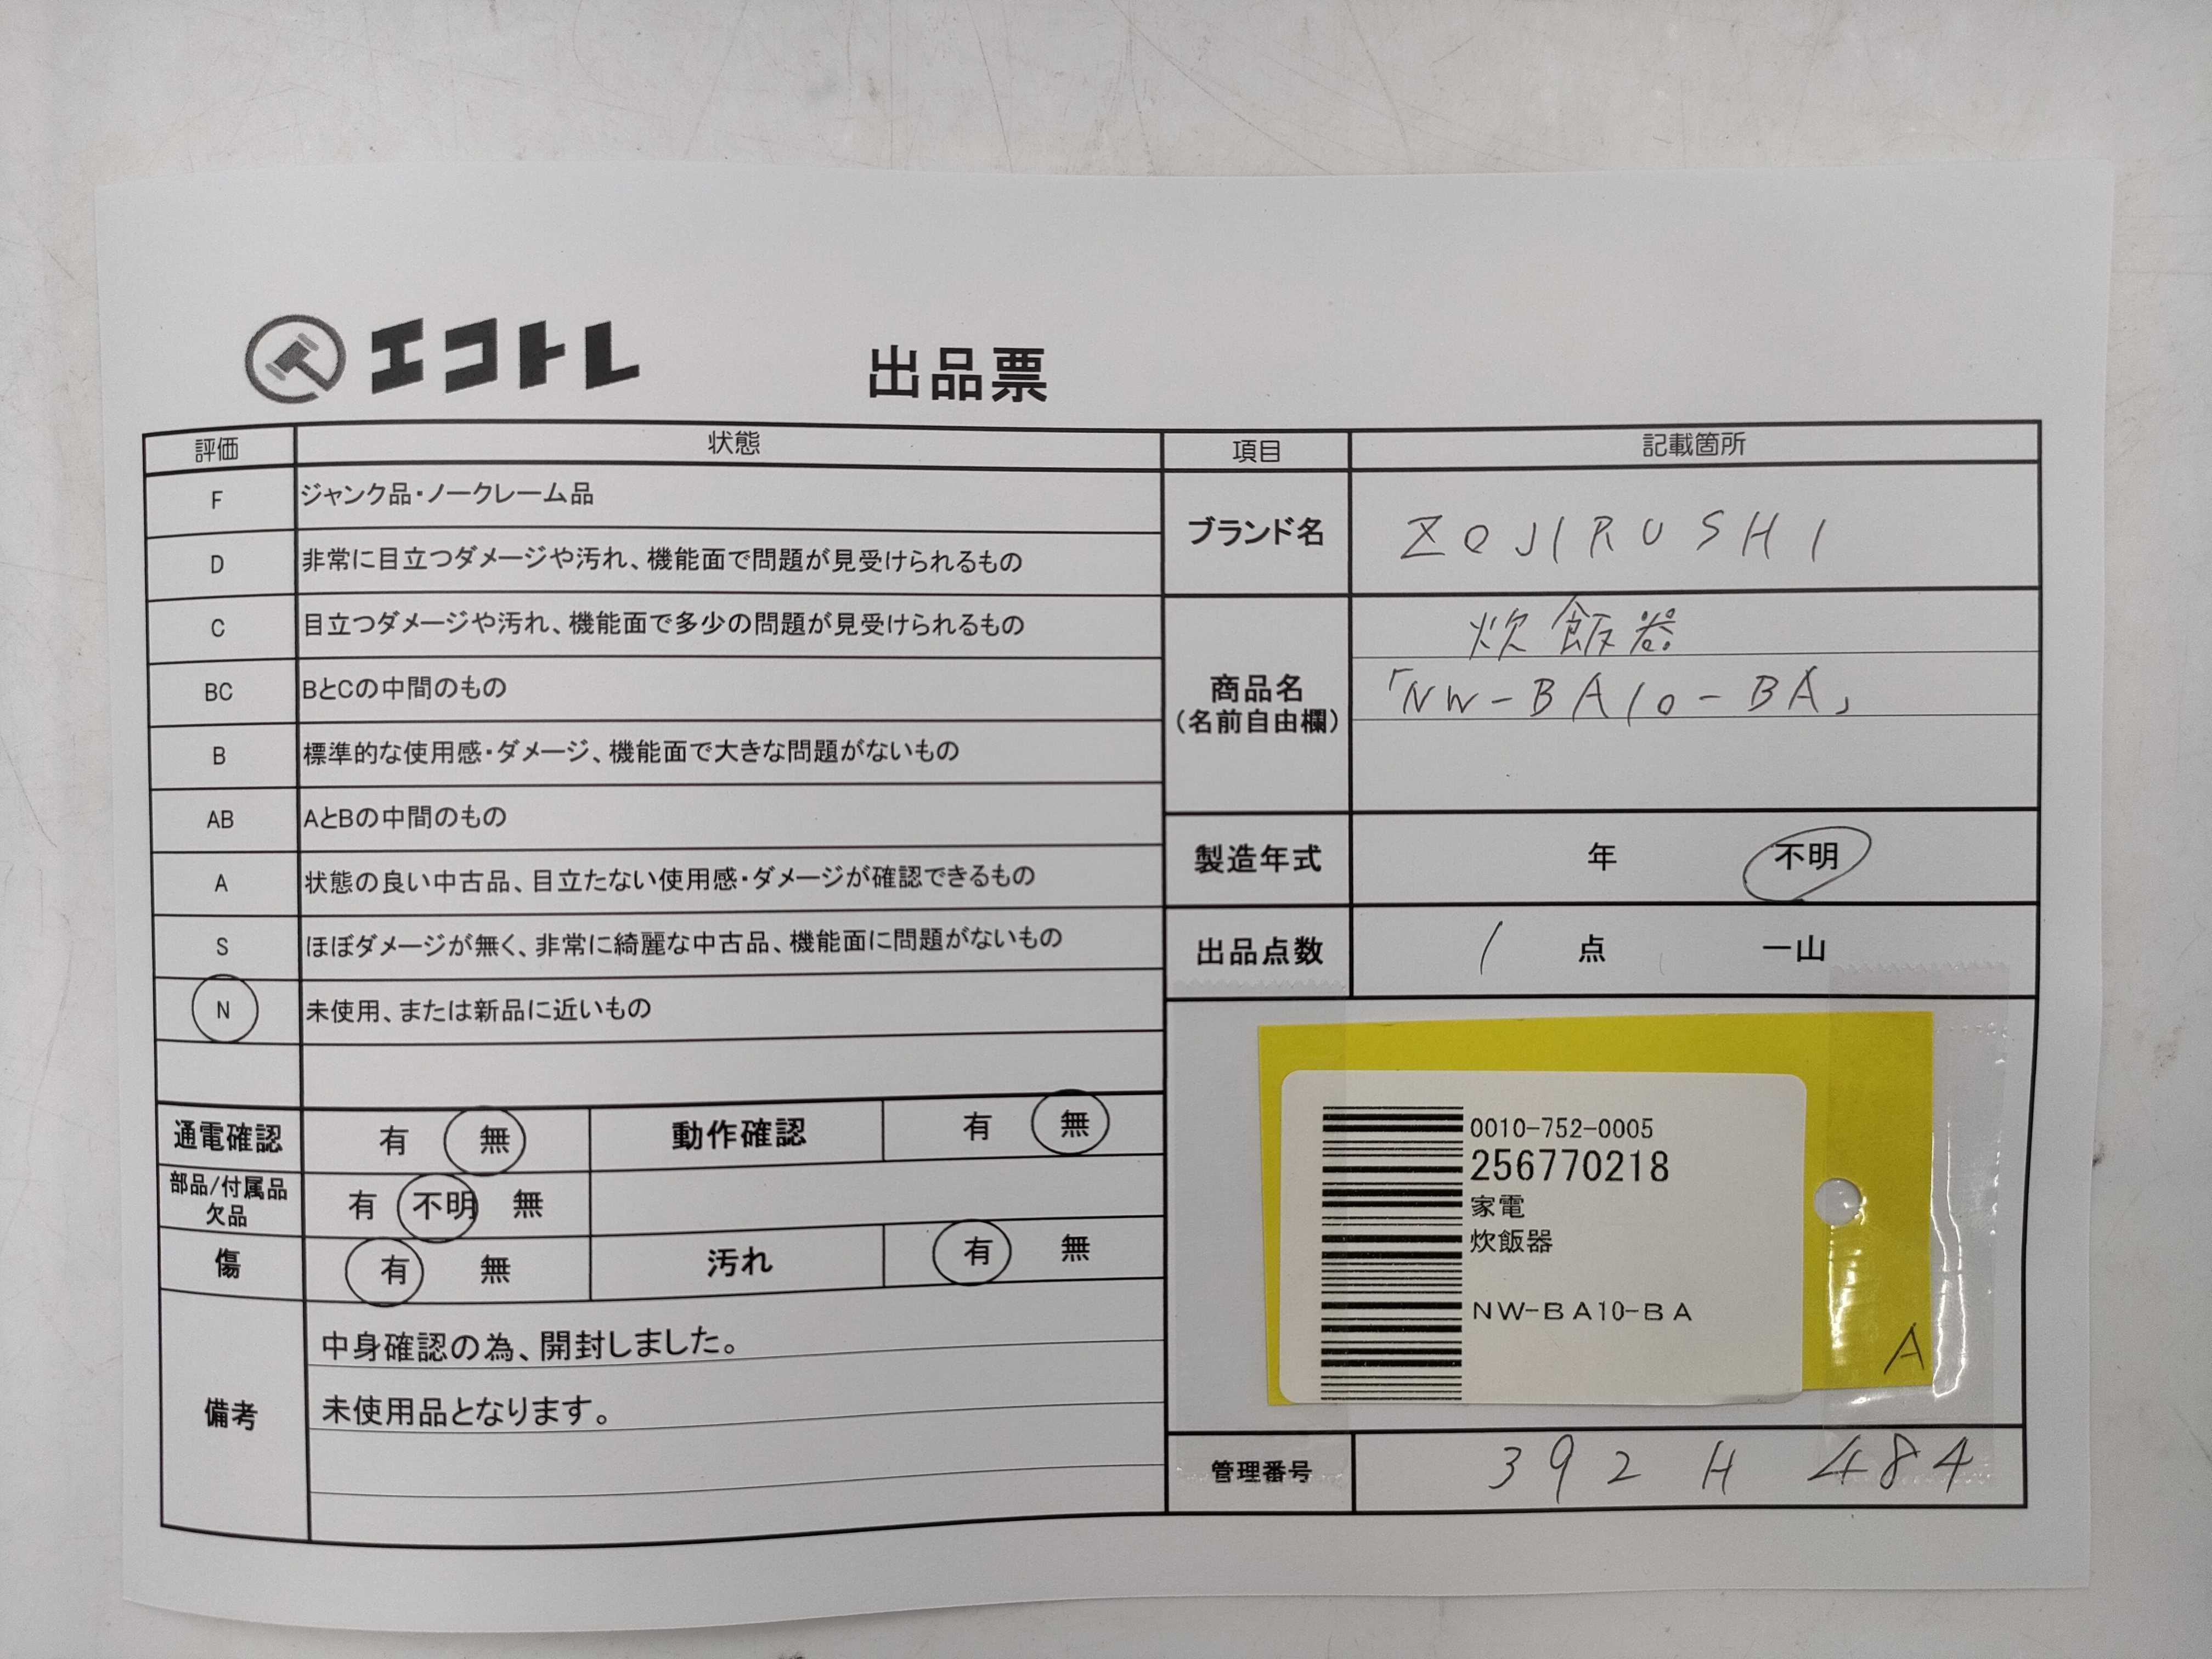 エコトレ
出品票
評価 状態
F ジャンク品・ノークレーム品
D 非常に目立つダメージや汚れ、機能面で問題が見受けられるもの
C 目立つダメージや汚れ、機能面で多少の問題が見受けられるもの
BC BとCの中間のもの
B 標準的な使用感・ダメージ、機能面で大きな問題がないもの
AB AとBの中間のもの
A 状態の良い中古品、目立たない使用感・ダメージが確認できるもの
S ほぼダメージが無く、非常に綺麗な中古品、機能面に問題がないもの
N 未使用、または新品に近いもの
通電確認 有 無 動作確認 有 無
部品/付属品
欠品 有 不明 無
傷 有 無 汚れ 有 無
備考
中身確認の為、開封しました。
未使用品となります。
項目 記載箇所
ブランド名 ZOJIRUSHI
商品名
(名前自由欄)
炊飯器
「NW-BA10-BA」
製造年式 年 不明
出品点数 1 点 一山
0010-752-0005
256770218
家電
炊飯器
NW-BA10-BA
A
管理番号 392 H 484